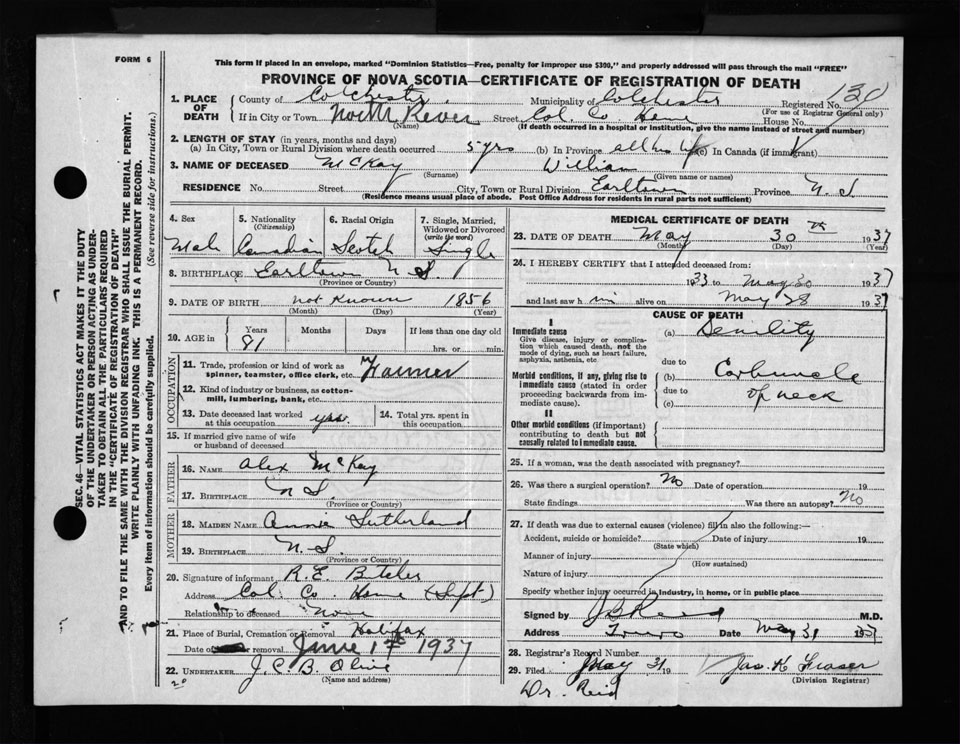 FORM 6
This form if placed in an envelope, marked "Dominion Statistics—Free, penalty for improper use $300," and properly addressed will pass through the mail "FREE"
PROVINCE OF NOVA SCOTIA—CERTIFICATE OF REGISTRATION OF DEATH
1. PLACE OF DEATH County of Colchester Municipality of Colchester Registered No. 130
(For use of Registrar General only)
If in City or Town North River Street Col. Co. Home House No.
(Name) (If death occurred in a hospital or institution, give the name instead of street and number)
2. LENGTH OF STAY (in years, months and days)
(a) In City, Town or Rural Division where death occurred 5 yrs (b) In Province all his life (c) In Canada (if immigrant)
3. NAME OF DECEASED McKay William
(Surname) (Given name or names)
RESIDENCE No. Street City, Town or Rural Division Earltown Province N. S
(Residence means usual place of abode. Post Office Address for residents in rural parts not sufficient)
4. Sex 5. Nationality (Citizenship) 6. Racial Origin 7. Single, Married, Widowed or Divorced (write the word)
Male Canadian Scotch Single
8. BIRTHPLACE Earltown N. S.
(Province or Country)
9. DATE OF BIRTH not known 1856
(Month) (Day) (Year)
10. AGE in Years Months Days If less than one day old
81 hrs. or min.
OCCUPATION
11. Trade, profession or kind of work as spinner, teamster, office clerk, etc. Farmer
12. Kind of industry or business, as cotton-mill, lumbering, bank, etc.
13. Date deceased last worked at this occupation yrs. 14. Total yrs. spent in this occupation.
15. If married give name of wife or husband of deceased
FATHER
16. NAME Alex McKay
17. BIRTHPLACE N S.
(Province or Country)
MOTHER
18. MAIDEN NAME Annie Sutherland
19. BIRTHPLACE N. S.
(Province or Country)
20. Signature of informant R. E. Butcher
Address Col. Co. Home (Supt)
Relationship to deceased None
21. Place of Burial, Cremation or Removal Halifax
Date of removal June 1st 1937
22. UNDERTAKER J. C. B. Olive
(Name and address)
20
MEDICAL CERTIFICATE OF DEATH
23. DATE OF DEATH May 30th 1937
(Month) (Day) (Year)
24. I HEREBY CERTIFY that I attended deceased from:
1933 to May 30 1937
and last saw him alive on May 28 1937
CAUSE OF DEATH
I
Immediate cause (a) Senility
Give disease, injury or complication which caused death, not the mode of dying, such as heart failure, asphyxia, asthenia, etc.
due to
Morbid conditions, if any, giving rise to immediate cause (stated in order proceeding backwards from immediate cause). (b) Carbuncle
due to of neck
(c)
II
Other morbid conditions (if important) contributing to death but not causally related to immediate cause.
25. If a woman, was the death associated with pregnancy?
26. Was there a surgical operation? No Date of operation 19
State findings Was there an autopsy? No
27. If death was due to external causes (violence) fill in also the following:—
Accident, suicide or homicide? Date of injury 19
(State which)
Manner of injury
(How sustained)
Nature of injury
Specify whether injury occurred in industry, in home, or in public place
Signed by J B Reid M.D.
Address Truro Date May 31 1937
28. Registrar's Record Number
29. Filed May 31 19 Jas. K Fraser
(Division Registrar)
Dr. Reid
SEC. 46—VITAL STATISTICS ACT MAKES IT THE DUTY
OF THE UNDERTAKER OR PERSON ACTING AS UNDER-
TAKER TO OBTAIN ALL THE PARTICULARS REQUIRED
IN THE "CERTIFICATE OF REGISTRATION OF DEATH"
AND TO FILE THE SAME WITH THE DIVISION REGISTRAR WHO SHALL ISSUE THE BURIAL PERMIT.
WRITE PLAINLY WITH UNFADING INK. THIS IS A PERMANENT RECORD.
Every item of information should be carefully supplied. (See reverse side for instructions.)